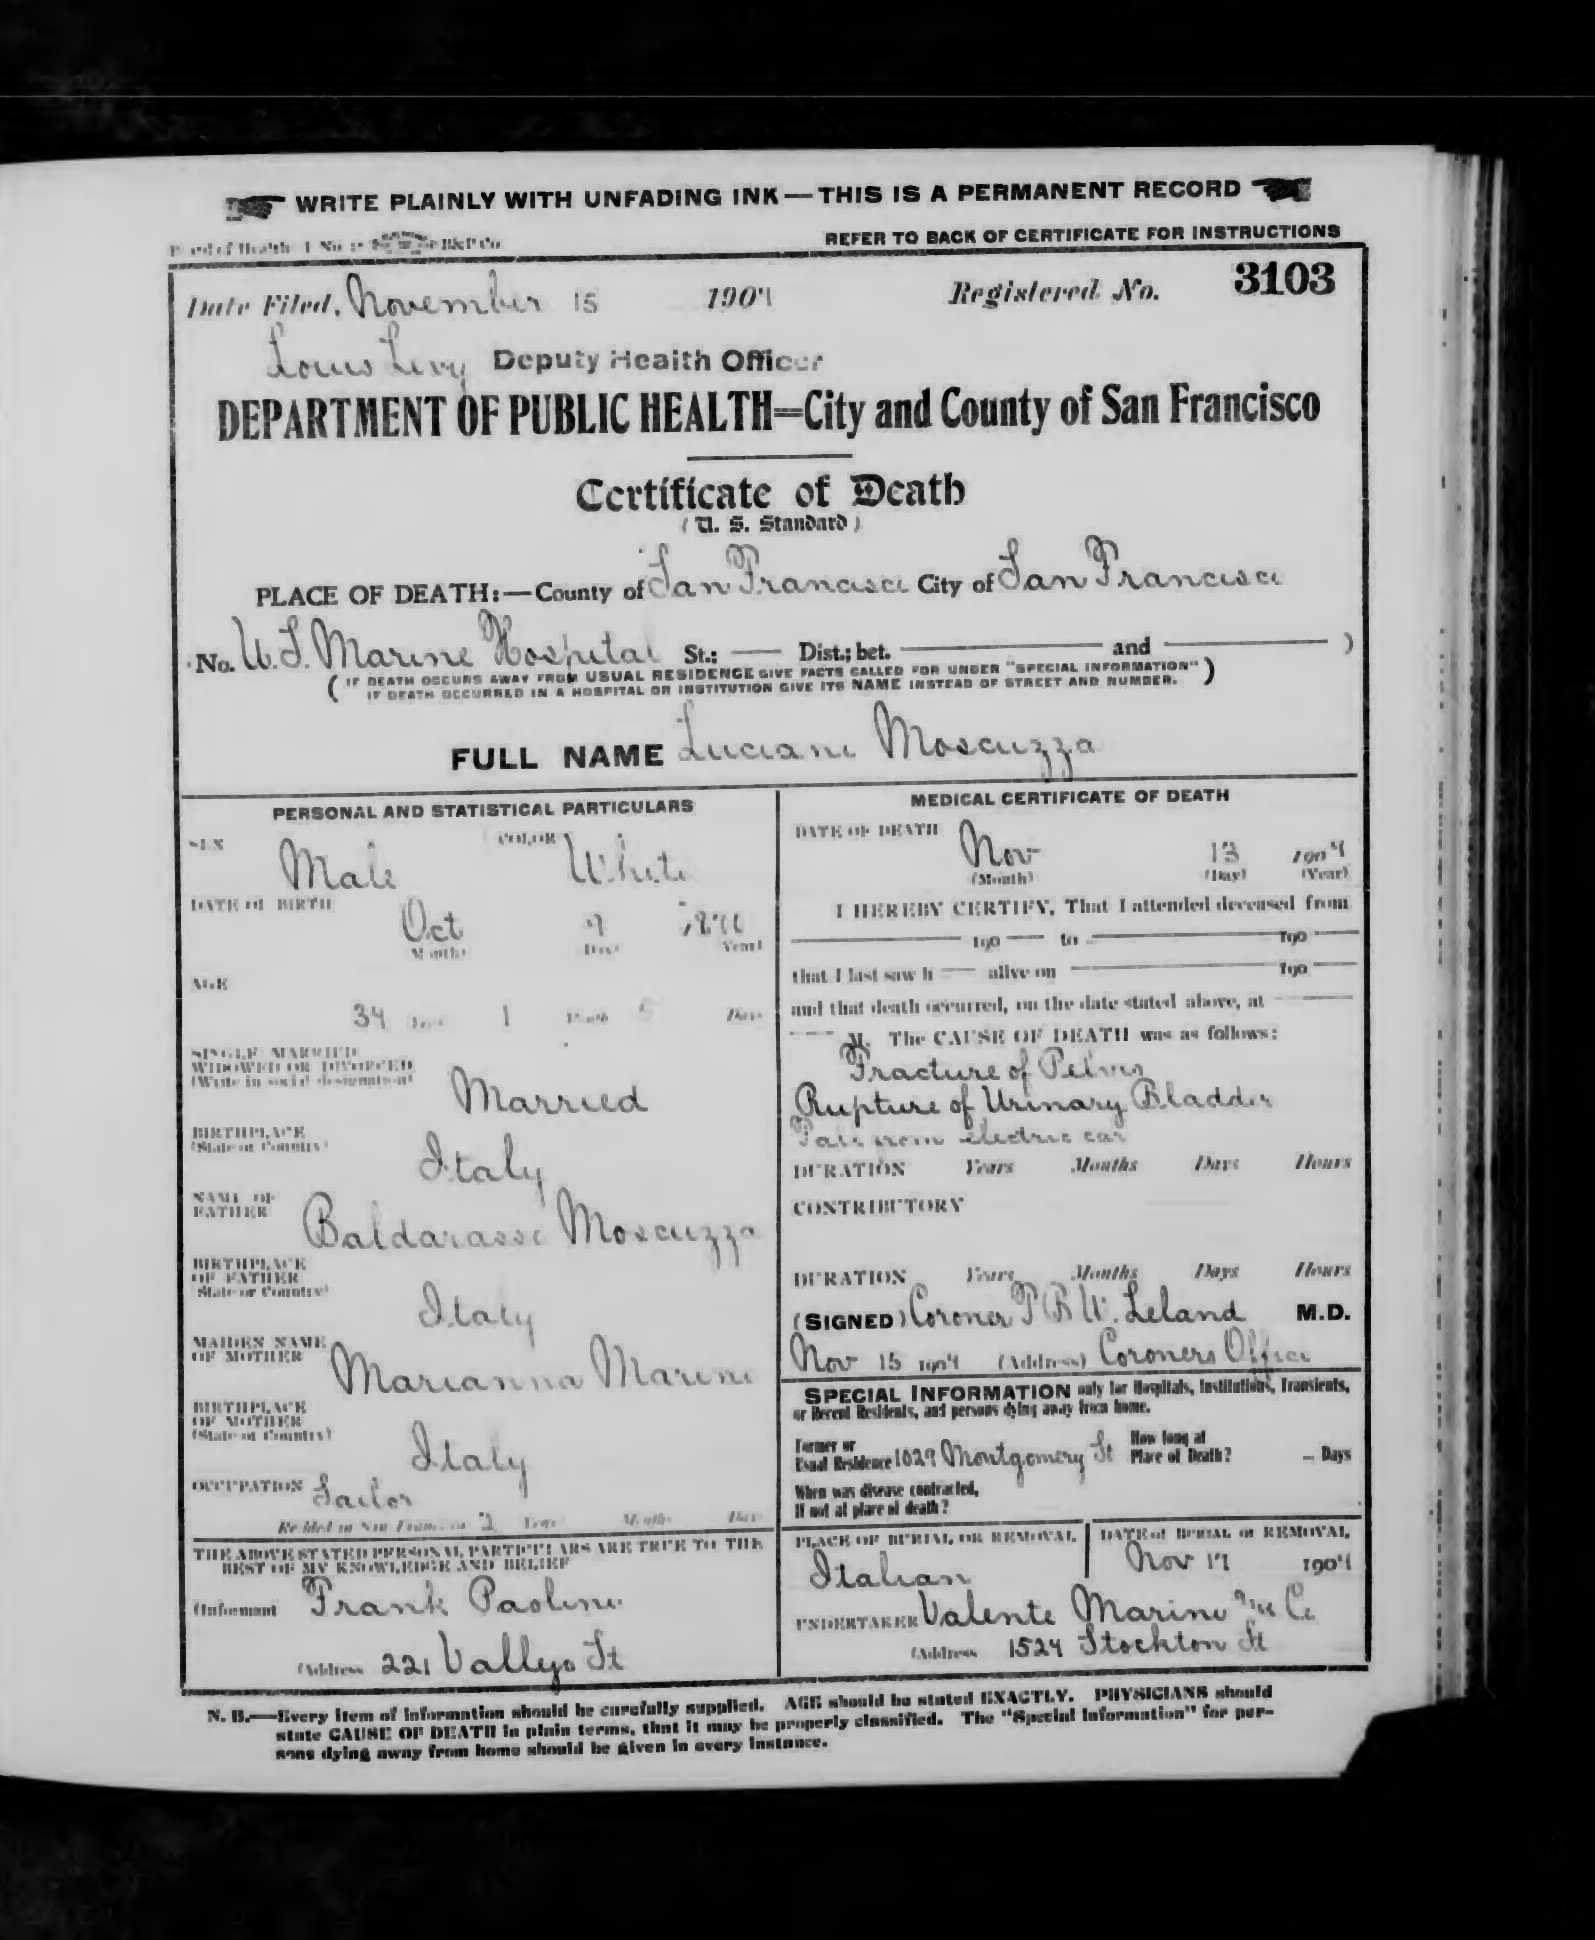 WRITE PLAINLY WITH UNFADING INK — THIS IS A PERMANENT RECORD
REFER TO BACK OF CERTIFICATE FOR INSTRUCTIONS
Date Filed, November 15 1904 Registered No. 3103
Louis Levy Deputy Health Officer
DEPARTMENT OF PUBLIC HEALTH=City and County of San Francisco
Certificate of Death
(U. S. Standard)
PLACE OF DEATH:—County of San Francisco City of San Francisco
No. U.S. Marine Hospital St.; — Dist.; bet. — and — )
( IF DEATH OCCURS AWAY FROM USUAL RESIDENCE GIVE FACTS CALLED FOR UNDER "SPECIAL INFORMATION" )
IF DEATH OCCURRED IN A HOSPITAL OR INSTITUTION GIVE ITS NAME INSTEAD OF STREET AND NUMBER.
FULL NAME Luciano Moscuzza
PERSONAL AND STATISTICAL PARTICULARS
SEX Male COLOR White
DATE OF BIRTH
Oct 1870
Month Day Year
AGE
34 Years 1 Month 5 Days
SINGLE MARRIED
WIDOWED OR DIVORCED
(Write in social designation)
Married
BIRTHPLACE
(State or Country)
Italy
NAME OF
FATHER
Baldarasse Moscuzza
BIRTHPLACE
OF FATHER
(State or Country)
Italy
MAIDEN NAME
OF MOTHER
Marianna Marino
BIRTHPLACE
OF MOTHER
(State or Country)
Italy
OCCUPATION Sailor
Resided in San Francisco 2 Years Months Days
THE ABOVE STATED PERSONAL PARTICULARS ARE TRUE TO THE
BEST OF MY KNOWLEDGE AND BELIEF
(Informant Frank Paolini
(Address 221 Vallejo St
MEDICAL CERTIFICATE OF DEATH
DATE OF DEATH
Nov 13 1904
(Month) (Day) (Year)
I HEREBY CERTIFY, That I attended deceased from
— 190 — to — 190 —
that I last saw h — alive on — 190 —
and that death occurred, on the date stated above, at —
— M. The CAUSE OF DEATH was as follows:
Fracture of Pelvis
Rupture of Urinary Bladder
Fall from electric car
DURATION Years Months Days Hours
CONTRIBUTORY
DURATION Years Months Days Hours
(SIGNED) Coroner T B W. Leland M.D.
Nov 15 1904 (Address) Coroners Office
SPECIAL INFORMATION only for Hospitals, Institutions, Transients,
or Recent Residents, and persons dying away from home.
Former or
Usual Residence 1029 Montgomery St
How long at
Place of Death? — Days
When was disease contracted,
If not at place of death?
PLACE OF BURIAL OR REMOVAL
Italian
DATE of BURIAL or REMOVAL
Nov 17 1904
UNDERTAKER Valente Marini & Co
(Address 1524 Stockton St
N. B.—Every item of information should be carefully supplied. AGE should be stated EXACTLY. PHYSICIANS should
state CAUSE OF DEATH in plain terms, that it may be properly classified. The "Special Information" for per-
sons dying away from home should be given in every instance.